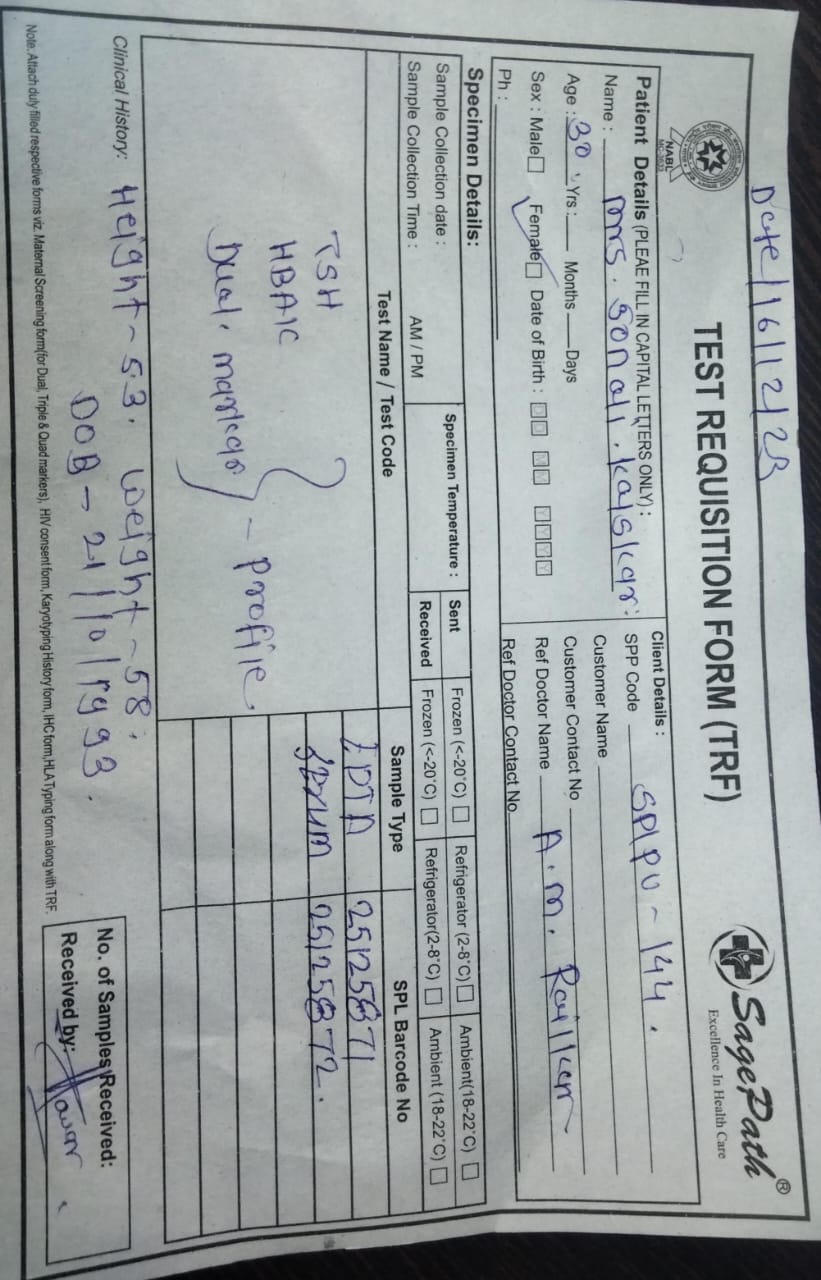 Date/16/12/23
TEST REQUISITION FORM (TRF)
NABL
SagePath®
Excellence In Health Care
Patient Details (PLEAE FILL IN CAPITAL LETTERS ONLY) :
Name : mrs. Sonali. Kalskar.
Age : 30 Yrs : Months Days
Sex : Male Female Date of Birth : D D M M Y Y Y Y
Ph :
Client Details :
SPP Code SPLPU - 144.
Customer Name
Customer Contact No
Ref Doctor Name A. M.
Ref Doctor Contact No
Specimen Details:
Sample Collection date :
Sample Collection Time : AM / PM
Specimen Temperature :
Sent Frozen (<-20°C) Refrigerator (2-8°C) Ambient(18-22°C)
Received Frozen (<-20°C) Refrigerator(2-8°C) Ambient (18-22°C)
Test Name / Test Code Sample Type SPL Barcode No
TSH
HBA1C
Dual. - profile.
EDTA 25125871
Serum 25125872.
Clinical History: Height - 53. Weight - 58.
DOB - 21/10/1993.
No. of Samples Received:
Received by:
Note. Attach duly filled respective forms viz. Maternal Screening form(for Dual, Triple & Quad markers), HIV consent form, Karyotyping History form, IHC form,HLA Typing form along with TRF.